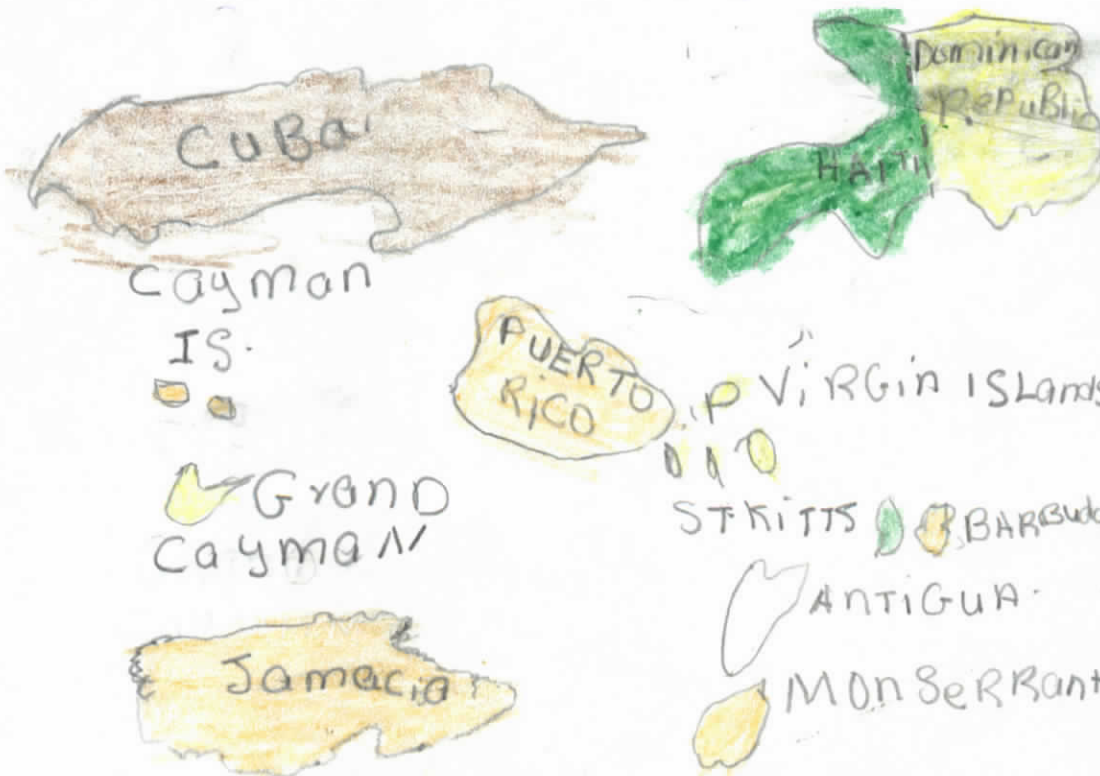 CUBa
Dominican
RePuBlic
HAITI
Cayman
IS.
PUERTO
RiCO
ViRGin ISLands
GranD
CaymaN
ST.KiTTS
BARBuda
ANTiGUA.
Jamacia
MONSeRRant